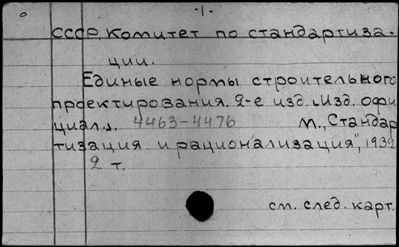 ·1·
СССР. Комитет по стандартиза-
ции.
Единые нормы строительного
проектирования. 2-е изд. „Изд. офи
циал.„. 4463-4476 М., „Стандар
тизация и рационализация", 1932
2 т.
см. след. карт.